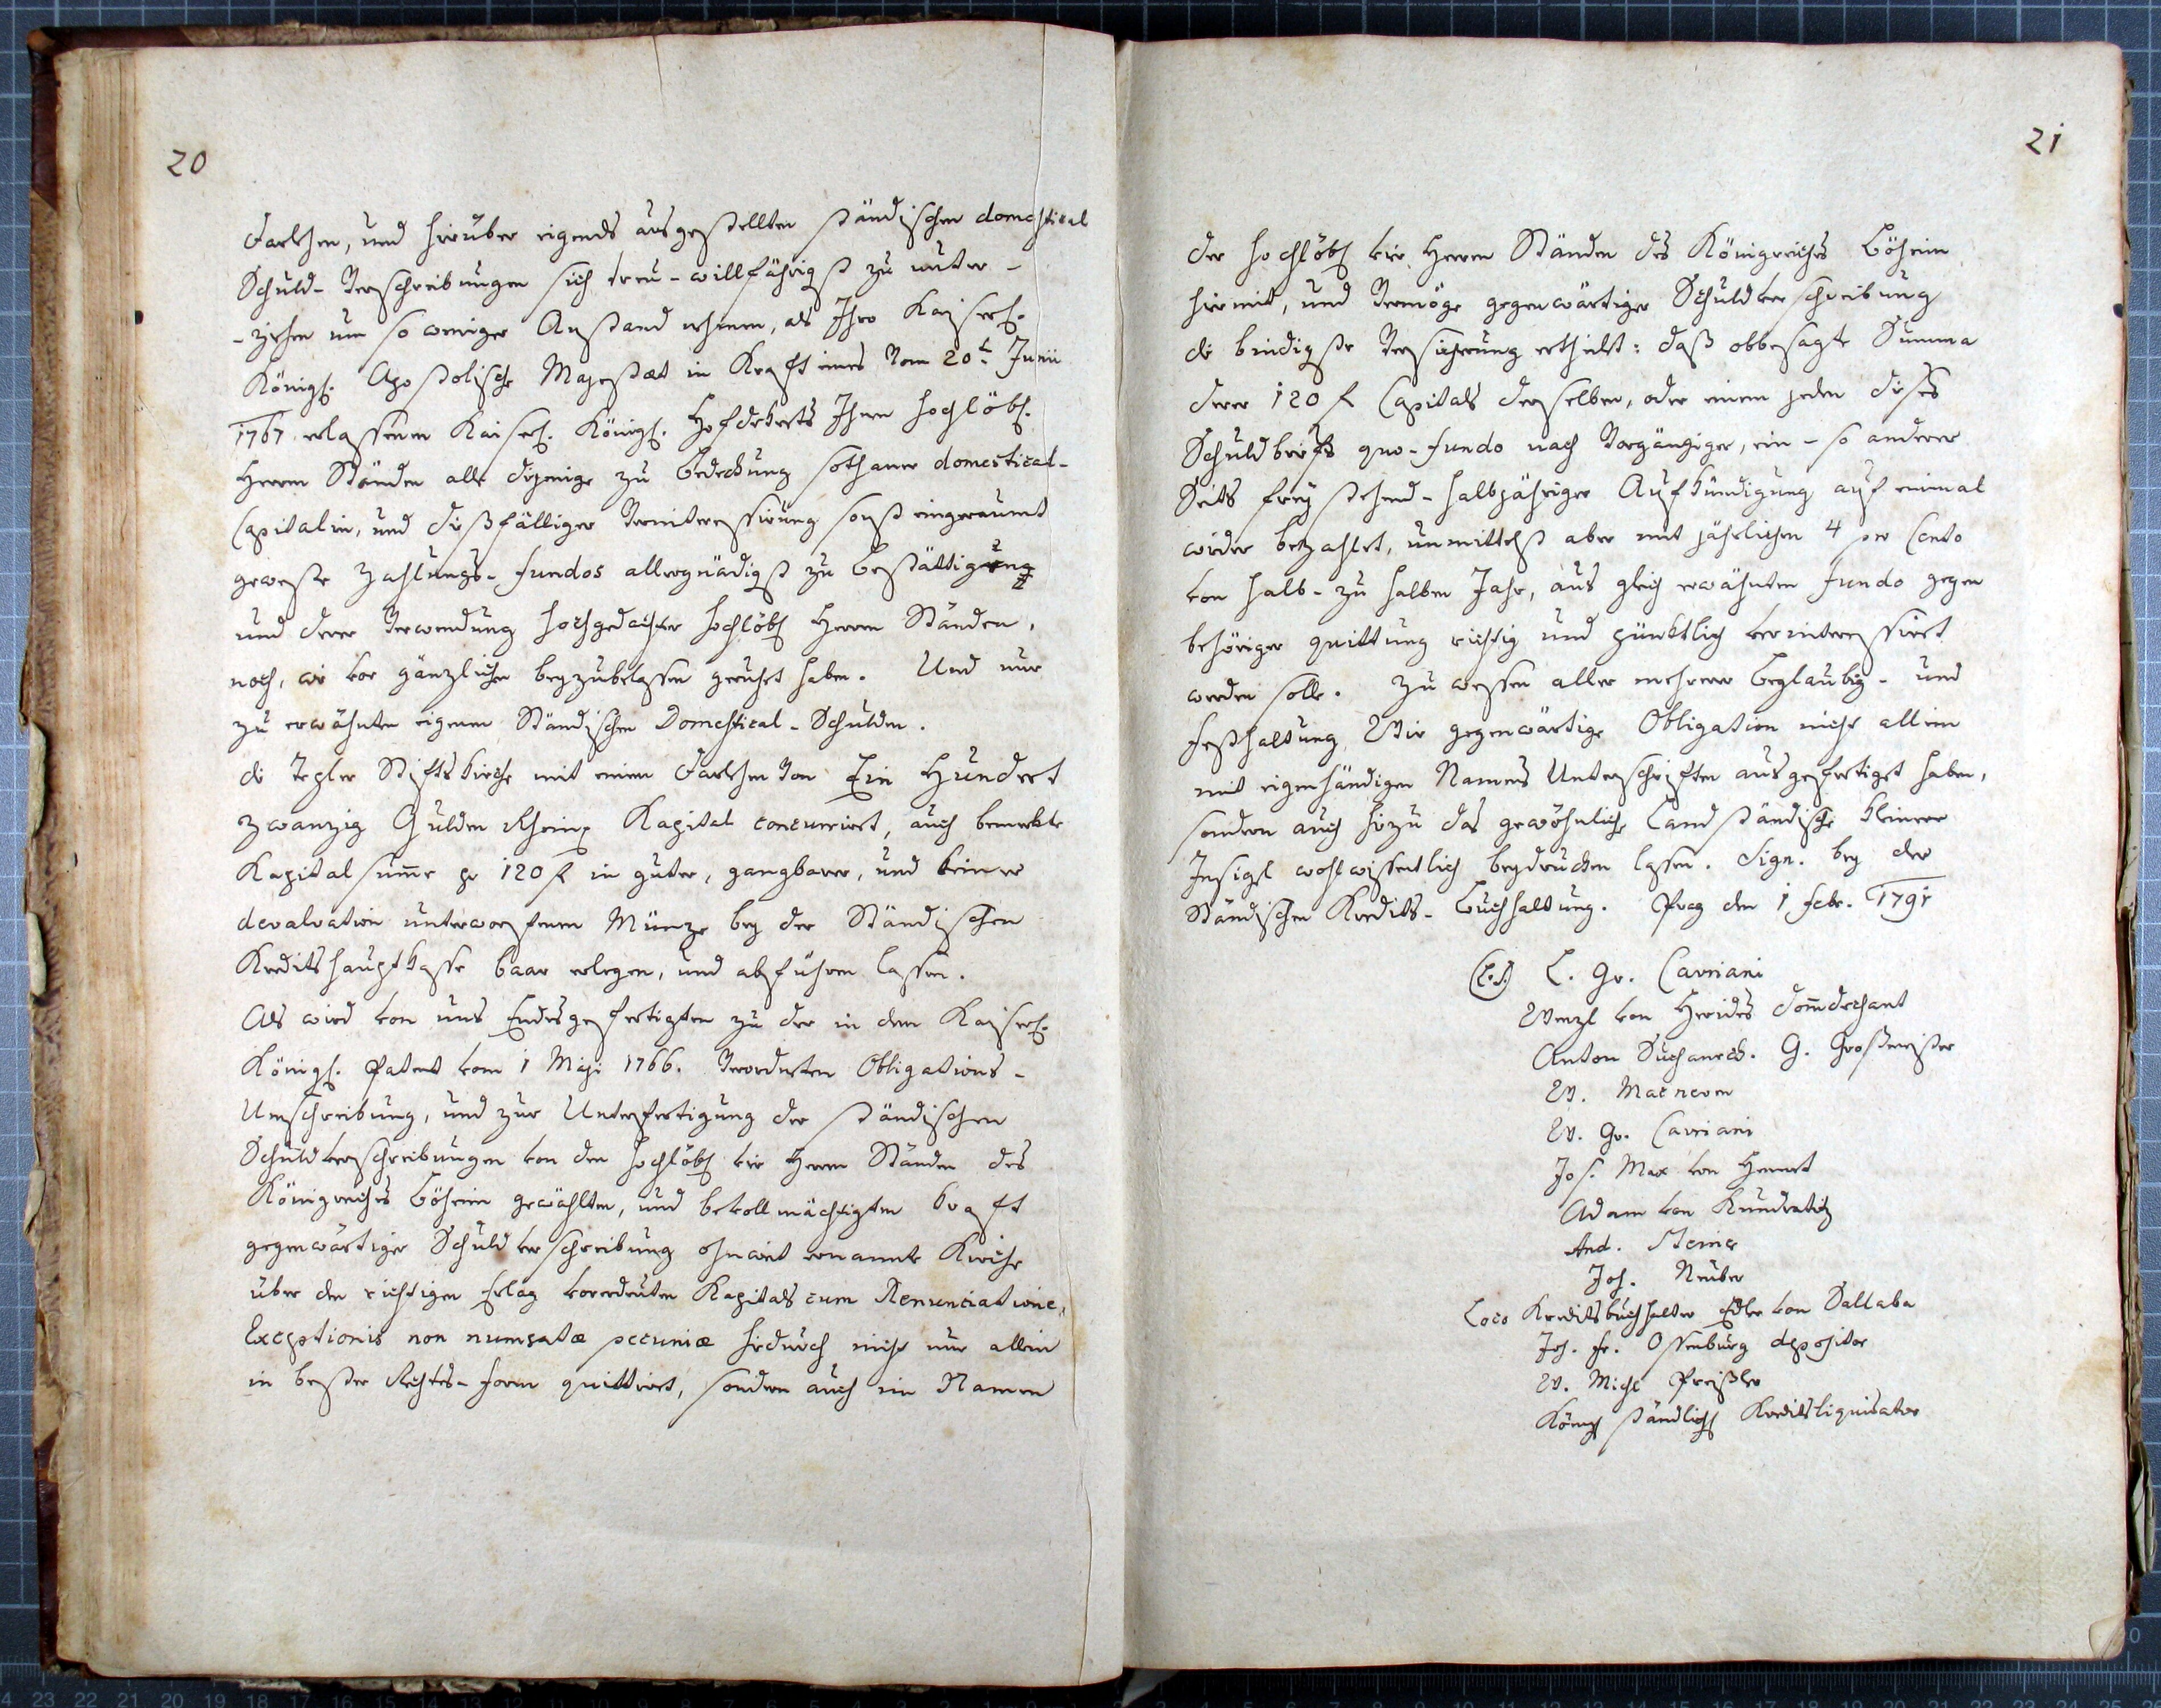 20
Darlehen, und hierüber eigends ausgestellten ständischen domestical
Schuld-Verschreibungen sich treu-willfährigst zu unter-
-ziehen um so weniger Anstand nehmen, als Ihro Kaiserl.
Königl. Apostolische Majestæt in Kraft eines vom 20t Junii
1767 erlassenen Kaiserl. Königl. Hofdekrets Ihnen hochlöbl.
Herrn Ständen alle diejenige zu Bedeckung sothaner domestical-
Capitalien, und dießfälliger Verinteressirung sonst eingeraumt
geweste Zahlungs-fundos allergnädigst zu bestättigung
und derer Verwendung hochgedachter hochlöbl Herrn Ständen,
noch, wie vor gänzlichen beyzubelassen geruhet haben. Und nun
zu erwähnten eigenen Ständischen Domestical-Schulden.
die Tepler Stiftskirche mit einem Darlehen von Ein Hundert
zwanzig Gulden Rheinl. Kapital concurrirt, auch bemerkte
Kapitalsumme pr 120 f in guter, gangbarer, und keiner
devalvation unterworfenen Münze bey der Ständischen
Kreditshauptkasse baar erlegen, und abführen lassen.
Als wird von uns Endesgefertigten zu der in dem Kaiserl.
Königl. Patent vom 1 Maji 1766. verordneten Obligations-
Umschreibung, und zur Unterfertigung der ständischen
Schuldverschreibungen von den hochlöbl vier Herrn Ständen des
Königreichs Böheim gewählten, und bevollmächtigten Kraft
gegenwärtiger Schuldverschreibung ohnweit ernannte Kirche
über den richtigen Erlag vorerdeuten Kapitals cum Renunciatione,
Exceptionis non numeratæ pecuniæ hiedurch nicht nur allein
in bester Rechts-form quittiret, sondern auch im Namen
21
der hochlöbl vier Herrn Ständen des Königreichs Böheim
hiermit, und vermöge gegenwärtiger Schuldverschreibung
die bündigste Versicherung ertheilet: daß obbesagte Summa
derer 120 f Capitals derselben, oder einem jeden dieses
Schuldbriefs quo-fundo nach vorgängiger, ein-so anderer
Seits frey stehend-halbjähriger Aufkündigung auf einmal
wieder bezahlet, unmittelst aber mit jährlichen 4 per Cento
von halb-zu halben Jahr, aus gleich erwähnten fundo gegen
behöriger quittung richtig und pünktlich verinteressirt
werden solle. Zu wessen aller mehrerer Beglaubig- und
festhaltung Wir gegenwärtige Obligation nicht allein
mit eigenhändigen Namens Unterschriften ausgefertiget haben,
sondern auch hiezu das gewöhnliche Landständische kleinere
Insigel wohlwissentlich beydrucken lassen. Sign. bey der
Ständischen Kredits-Buchhaltung. Prag den 1 Febr. 1791
(L.S.) L. Gr. Cavriani
Wenzl von Herites Domdechant
Anton Suchanek. G. Großmeister
W. Macneven
W. Gr. Cavriani
Jos. Max von Hennet
Adam von Kundratitz
And. Steiner
Joh. Neuber
Loco Kreditsbuchhalter Edler von Sallaba
Joh. Fr. Ossenburg depositor
W. Michl Preißler
Königl ständlich Kreditsliquidator